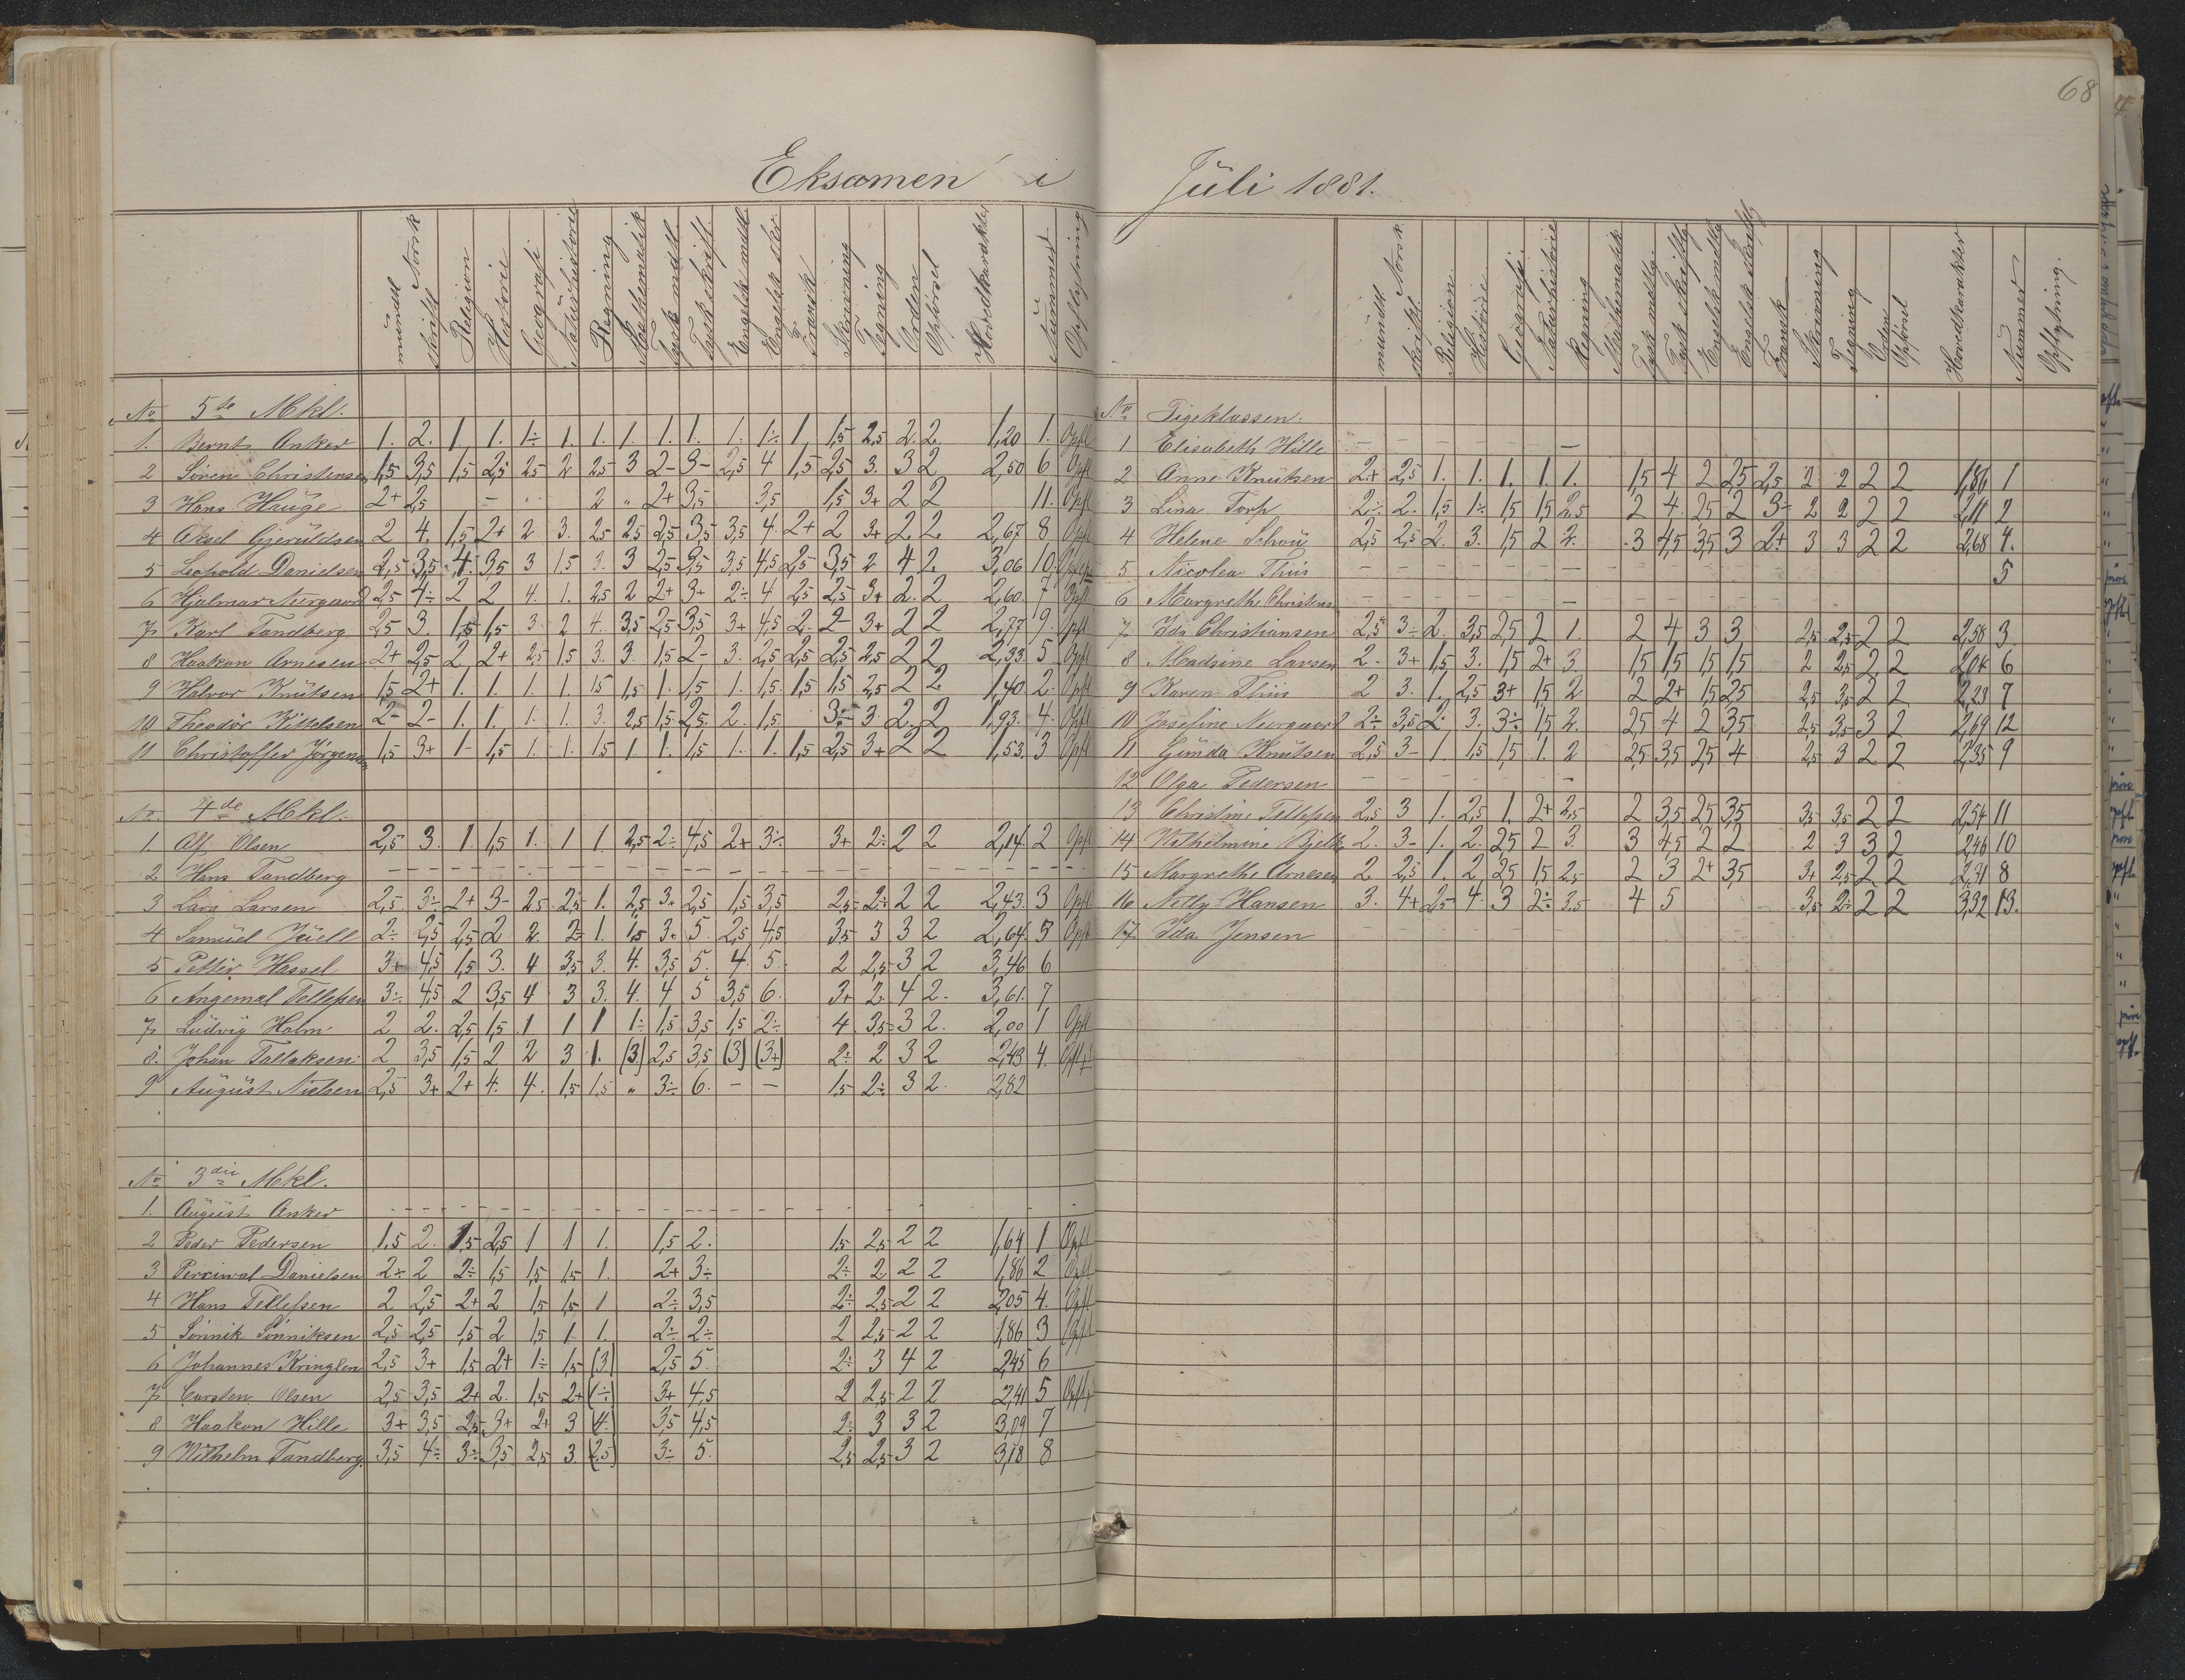 68
Eksamen i Juli 1881.
mundtl. skriftl. Norsk Religion Historie Geografi Naturhistorie Regning Mathematik Tysk mdtl. Tysk skriftl. Engelsk mdtl. Engelsk skr. Fransk Skrivning Tegning Orden Opførsel Hovedkarakter Nummer Opflytning
No 5te Mkl.
1. Bernt Anker 1. 2. 1 1. 1÷ 1. 1. 1. 1. 1. 1. 1÷ 1 1,5 2,5 2. 2. 1,20 1. Opfl
2 Søren Christensen 1,5 3,5 1,5 2,5 2,5 2 2,5 3 2- 3- 2,5 4 1,5 2,5 3. 3 2 2,50 6 Opfl
3 Hans Hauge 2+ 2,5 - 2 " 2+ 3,5 3,5 1,5 3+ 2 2 11. Opfl
4 Aksel Gjeruldsen 2 4. 1,5 2+ 2 3. 2,5 2,5 2,5 3,5 3,5 4. 2+ 2 3+ 2. 2. 2,67 8 Opfl
5 Leopold Danielsen 2,5 3,5 4. 3,5 3 1,5 3. 3 2,5 3,5 3,5 4,5 2,5 3,5 2 4 2. 3,06 10.
6 Hjalmar Neergaard 2,5 4÷ 2 2 4. 1. 2,5 2 2+ 3+ 2÷ 4 2,5 2,5 3+ 2. 2 2,60. 7 Opfl
7 Karl Tandberg 2,5 3. 1,5 1,5 3. 2 4. 3,5 2,5 3,5 3+ 4,5 2. 2- 3+ 2 2 2,77 9. Opfl
8 Haakon Arnesen 2+ 2,5 2 2+ 2,5 1,5 3. 3. 1,5 2- 3. 2,5 2,5 2,5 2,5 2 2 2,33. 5 Opfl
9 Halvor Knutsen 1,5 2+ 1. 1. 1. 1. 1,5 1,5 1. 1,5 1. 1,5 1,5 1,5 2,5 2 2 1,40. 2. Opfl
10 Theodor Kittelsen 2- 2- 1. 1. 1. 1. 3. 2,5 1,5 2,5. 2. 1,5. 3÷ 3. 2. 2 1,93. 4. Opfl
11 Christoffer Jørgensen 1,5 3+ 1- 1,5 1. 1. 1,5 1 1. 1,5 1. 1. 1,5 2,5 3+ 2 2 1,53. 3 Opfl
No. 4de Mkl.
1. Alf Olsen 2,5 3. 1. 1,5 1. 1 1. 2,5 2÷ 4,5 2+ 3÷ 3+ 2÷ 2 2 2,14. 2 Opfl
2 Hans Tandberg - - - - - - - - - - - - - - - -
3 Lars Larsen 2,5 3÷ 2+ 3- 2,5 2,5 1. 2,5 3. 2,5 1,5 3,5 2,5 2÷ 2 2 2,43. 3 Opfl
4 Samuel Juell 2÷ 2,5 2,5 2 2. 2÷ 1. 1,5 3. 5. 2,5 4,5 3,5 3 3 2 2,64. 5 Opfl
5 Petter Hessel 3+ 4,5 1,5 3. 4 3,5 3. 4. 3,5 5. 4. 5. 2 2,5 3 2 3,46 6
6 Angemal Tellefsen 3÷ 4,5 2 3,5 4 3 3. 4. 4 5 3,5 6. 3+ 2. 4 2. 3,61. 7
7 Ludvig Holm 2 2. 2,5 1,5 1 1 1 1÷ 1,5 3,5 1,5 2÷ 4 3,5 3 2. 2,00 1 Opfl
8. Johan Tallaksen 2 3,5 1,5 2 2 3 1. (3) 2,5 3,5 (3) (3+) 2÷ 2 3 2 2,43 4.
9 August Nielsen 2,5 3+ 2+ 4. 4. 1,5 1,5 " 3÷ 6. - - 1,5 2÷ 3 2. 2,82
No 3die Mkl.
1. August Anker - - - - - - - - - - - - - - - -
2 Peder Pedersen 1,5 2. 1,5 2,5 1 1 1. 1,5 2. 1,5 2,5 2 2 1,64 1 Opfl
3 Percival Danielsen 2÷ 2 2÷ 1,5 1,5 1,5 1. 2+ 3÷ 2÷ 2 2 2 1,86 2 Opfl
4 Hans Tellefsen 2 2,5 2+ 2 1,5 1,5 1 2÷ 3,5 2÷ 2,5 2 2 2,05 4. Opfl
5 Sønnik Sønniksen 2,5 2,5 1,5 2 1,5 1 1. 2÷ 2÷ 2 2,5 2 2 1,86 3 Opfl
6 Johannes Kringlen 2,5 3+ 1,5 2+ 1÷ 1,5 (3) 2,5 5. 2÷ 3 4 2 2,45 6
7 Carsten Olsen 2,5 3,5 2+ 2. 1,5 2+ 3+ 4,5 2 2,5 2 2 2,41 5
8 Haakon Hille 3+ 3,5 2,5 3+ 2+ 3 (4.) 3,5 4,5 2÷ 3 3 2 3,09 7
9 Wilhelm Tandberg. 3,5 4÷ 3÷ 3,5 2,5 3. (2,5) 3÷ 5. 2,5 2,5 3 2 3,18 8
mundtl. skriftl. Norsk. Religion. Historie Geografi. Naturhistorie Regning Mathematik Tysk mdtlg. Tysk skriftlg Engelsk mdtlg Engelsk skriftlg Fransk Skrivning Tegning Orden Opførsel Hovedkarakter Nummer Opflytning.
No Pigeklassen.
1 Elisabeth Hille - - - - - -
2 Anne Knutsen 2+ 2,5 1. 1. 1. 1. 1. 1,5 4 2 2,5 2,5 2 2 2 2 1,86 1
3 Lina Torp 2÷ 2. 1,5 1÷ 1,5 1,5 2,5 2 4 2,5 2 3÷ 2 2 2 2 2,11 2
4 Helene Schou 2,5 2,5 2. 3. 1,5 2 2. 3 4,5 3,5 3 2+ 3 3 2 2 2,68 4.
5 Nicolea Thiis - - - - - - 5
6 Margrethe Christens - - - - - -
7 Ida Christiansen 2,5 3÷ 2. 3,5 2,5 2 1. 2 4 3 3 2,5 2,5 2 2 2,58 3.
8 Mendsine Larsen 2. 3+ 1,5 3. 1,5 2+ 3 1,5 1,5 1,5 1,5 2 2,5 2 2 2,04 6
9 Karen Thiis 2 3. 1. 2,5 3+ 1,5 2 2 2+ 1,5 2,5 2,5 3,5 2 2 2,23 7
10 Josefine Neergaard 2÷ 3,5 2. 3. 3÷ 1,5 2. 2,5 4 2 3,5 2,5 3,5 3 2 2,69 12
11 Gunda Knutsen 2,5 3- 1. 1,5 1,5 1. 2 2,5 3,5 2,5 4 2,5 3 2 2 2,35 9
12 Olga Pedersen - - - - - -
13 Christine Tellefsen 2,5 3 1. 2,5 1. 2+ 2,5 2 3,5 2,5 3,5 3,5 3,5 2 2 2,54 11
14 Wilhelmine Bjelke 2. 3- 1. 2. 2,5 2 3. 3 4,5 2 2 2 3 3 2 2,46 10
15 Margrethe Arnesen 2 2,5 1. 2 2,5 1,5 2,5 2 3 2+ 3,5 3+ 2,5 2 2 2,31 8
16 Netly Hansen 3. 4+ 2,5 4. 3 2÷ 3,5 4 5 3,5 2÷ 2 2 3,32 13.
17 Ida Jensen - - - - - -